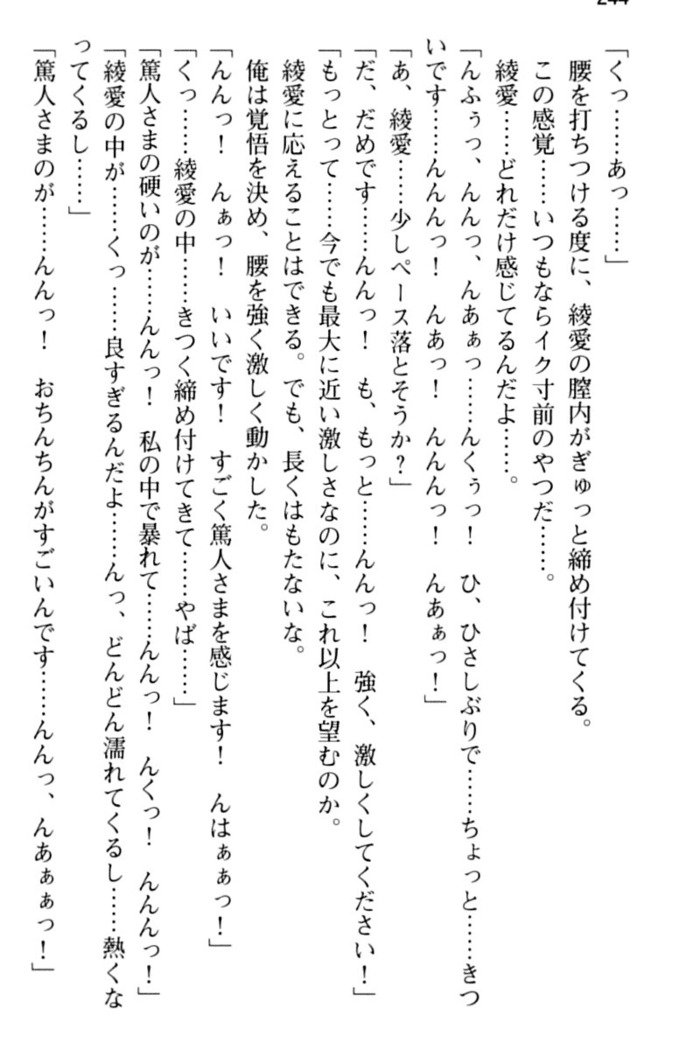 244
「くっ……あっ……」
腰を打ちつける度に、綾愛の膣内がぎゅっと締め付けてくる。
この感覚……いつもならイク寸前のやつだ……。
綾愛……どれだけ感じてるんだよ……。
「んふぅっ、んんっ、んあぁっ……んくぅっ！　ひ、ひさしぶりで……ちょっと……きつ
いです……んんんっ！　んあっ！　んんんっ！　んあぁっ！」
「あ、綾愛……少しペース落とそうか？」
「だ、だめです……んんっ！　も、もっと……んんっ！　強く、激しくしてください！」
「もっとって……今でも最大に近い激しさなのに、これ以上を望むのか。
綾愛に応えることはできる。でも、長くはもたないな。
俺は覚悟を決め、腰を強く激しく動かした。
「んんっ！　んぁっ！　いいです！　すごく篤人さまを感じます！　んはぁぁっ！」
「くっ……綾愛の中……きつく締め付けてきて……やば……」
「篤人さまの硬いのが……んんっ！　私の中で暴れて……んんっ！　んくっ！　んんんっ！」
「綾愛の中が……くっ……良すぎるんだよ……んっ、どんどん濡れてくるし……熱くな
ってくるし……」
「篤人さまのが……んんっ！　おちんちんがすごいんです……んんっ、んあぁぁっ！」